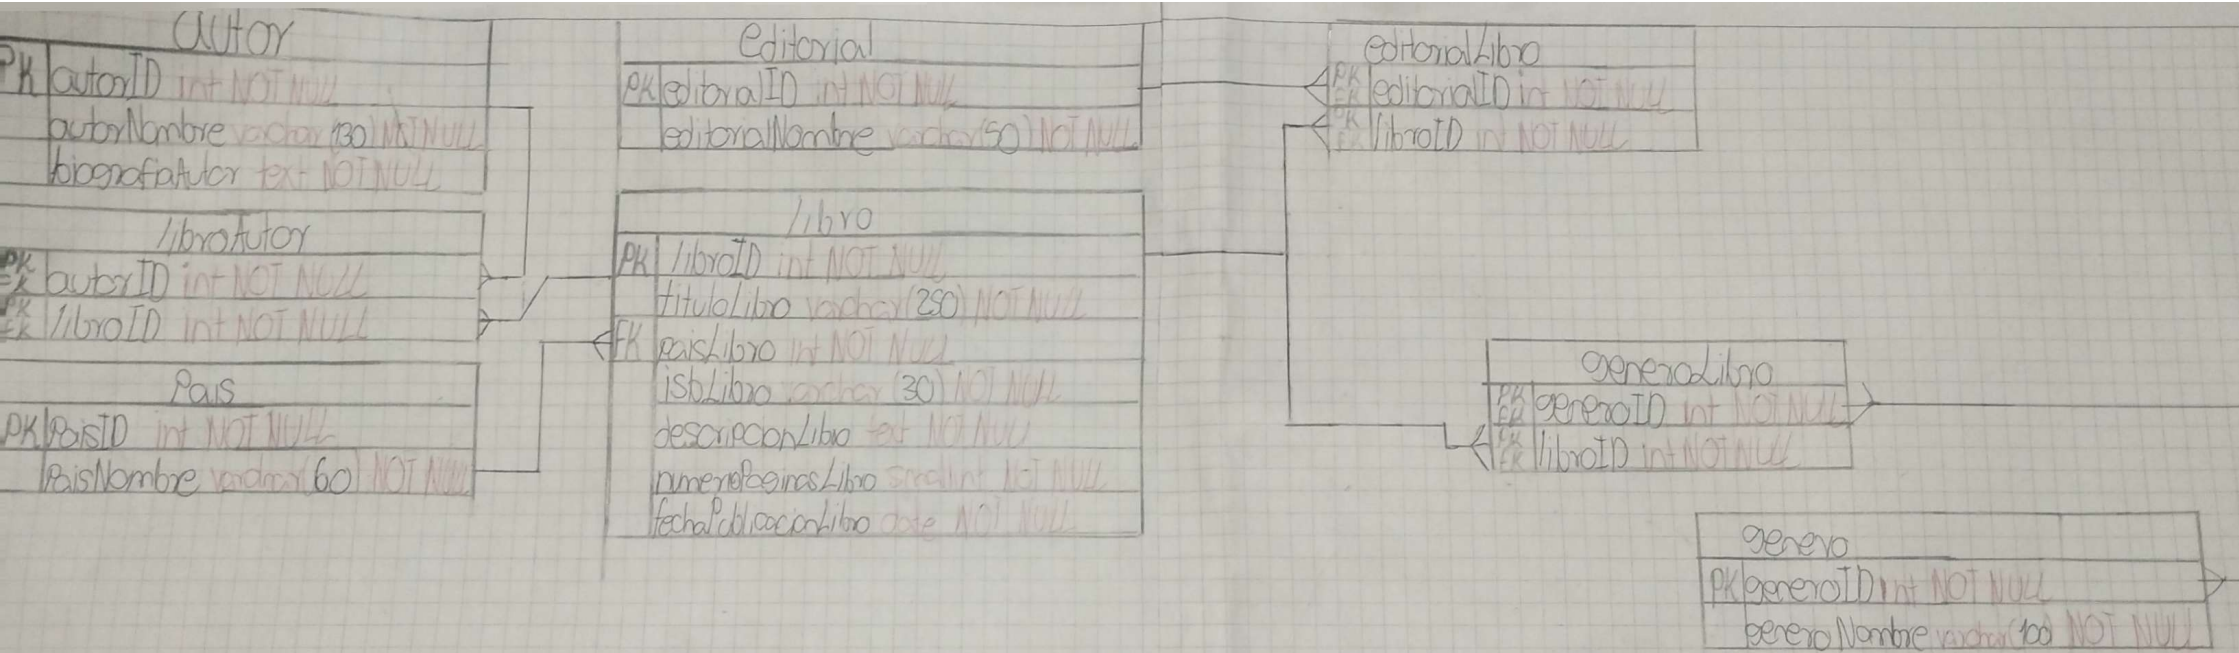 autor
PK autorID int NOT NULL
autorNombre varchar(130) NOT NULL
biografiaAutor text NOT NULL
libroAutor
PK FK autorID int NOT NULL
PK FK libroID int NOT NULL
Pais
PK PaisID int NOT NULL
PaisNombre varchar(60) NOT NULL
editorial
PK editorialID int NOT NULL
editorialNombre varchar(50) NOT NULL
libro
PK libroID int NOT NULL
tituloLibro varchar(250) NOT NULL
FK paisLibro int NOT NULL
isbLibro varchar(30) NOT NULL
descripcionLibro text NOT NULL
numeroPaginasLibro smallint NOT NULL
fechaPublicacionLibro date NOT NULL
editorialLibro
PK FK editorialID int NOT NULL
PK FK libroID int NOT NULL
generoLibro
PK FK generoID int NOT NULL
PK FK libroID int NOT NULL
genero
PK generoID int NOT NULL
generoNombre varchar(100) NOT NULL